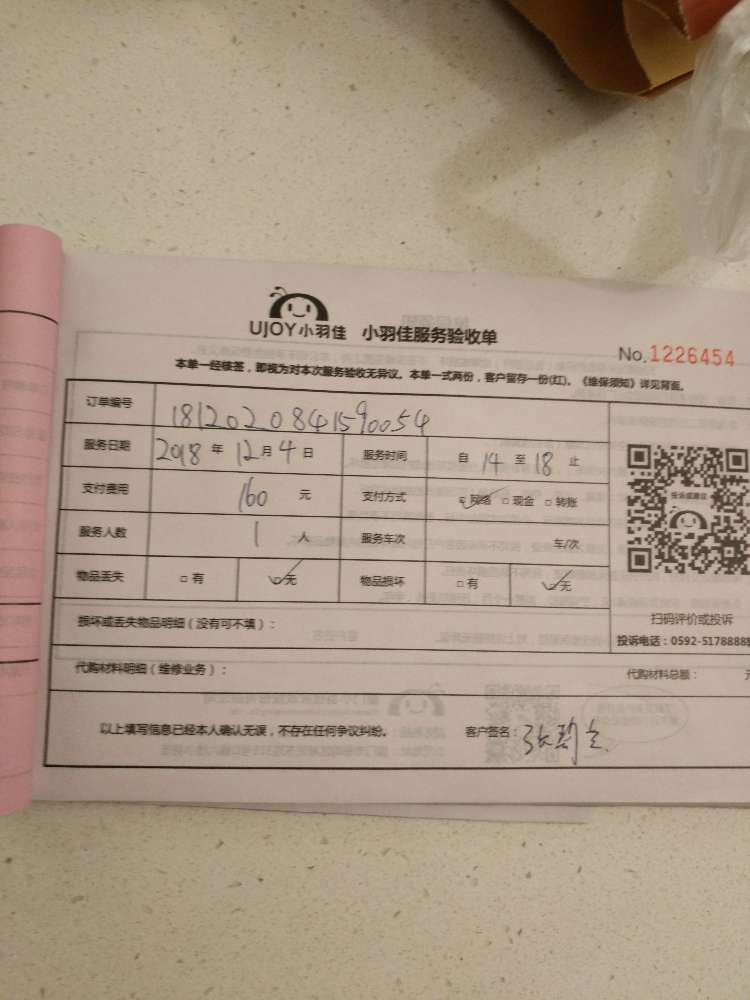 UJOY小羽佳 小羽佳服务验收单
No.1226454
本单一经核签，即视为对本次服务验收无异议。本单一式两份，客户留存一份(红)。《维保须知》详见背面。
订单编号 1812020841590054
服务日期 2018 年 12 月 4 日 服务时间 自 14 至 18 止
支付费用 160 元 支付方式 ☑ 网络 □ 现金 □ 转账
服务人数 1 人 服务车次 车/次
物品丢失 □ 有 ☑ 无 物品损坏 □ 有 ☑ 无
投诉或建议
扫码评价或投诉
投诉电话：0592-5178888
损坏或丢失物品明细（没有可不填）：
代购材料明细（维修业务）： 代购材料总额：
以上填写信息已经本人确认无误，不存在任何争议纠纷。 客户签名：张